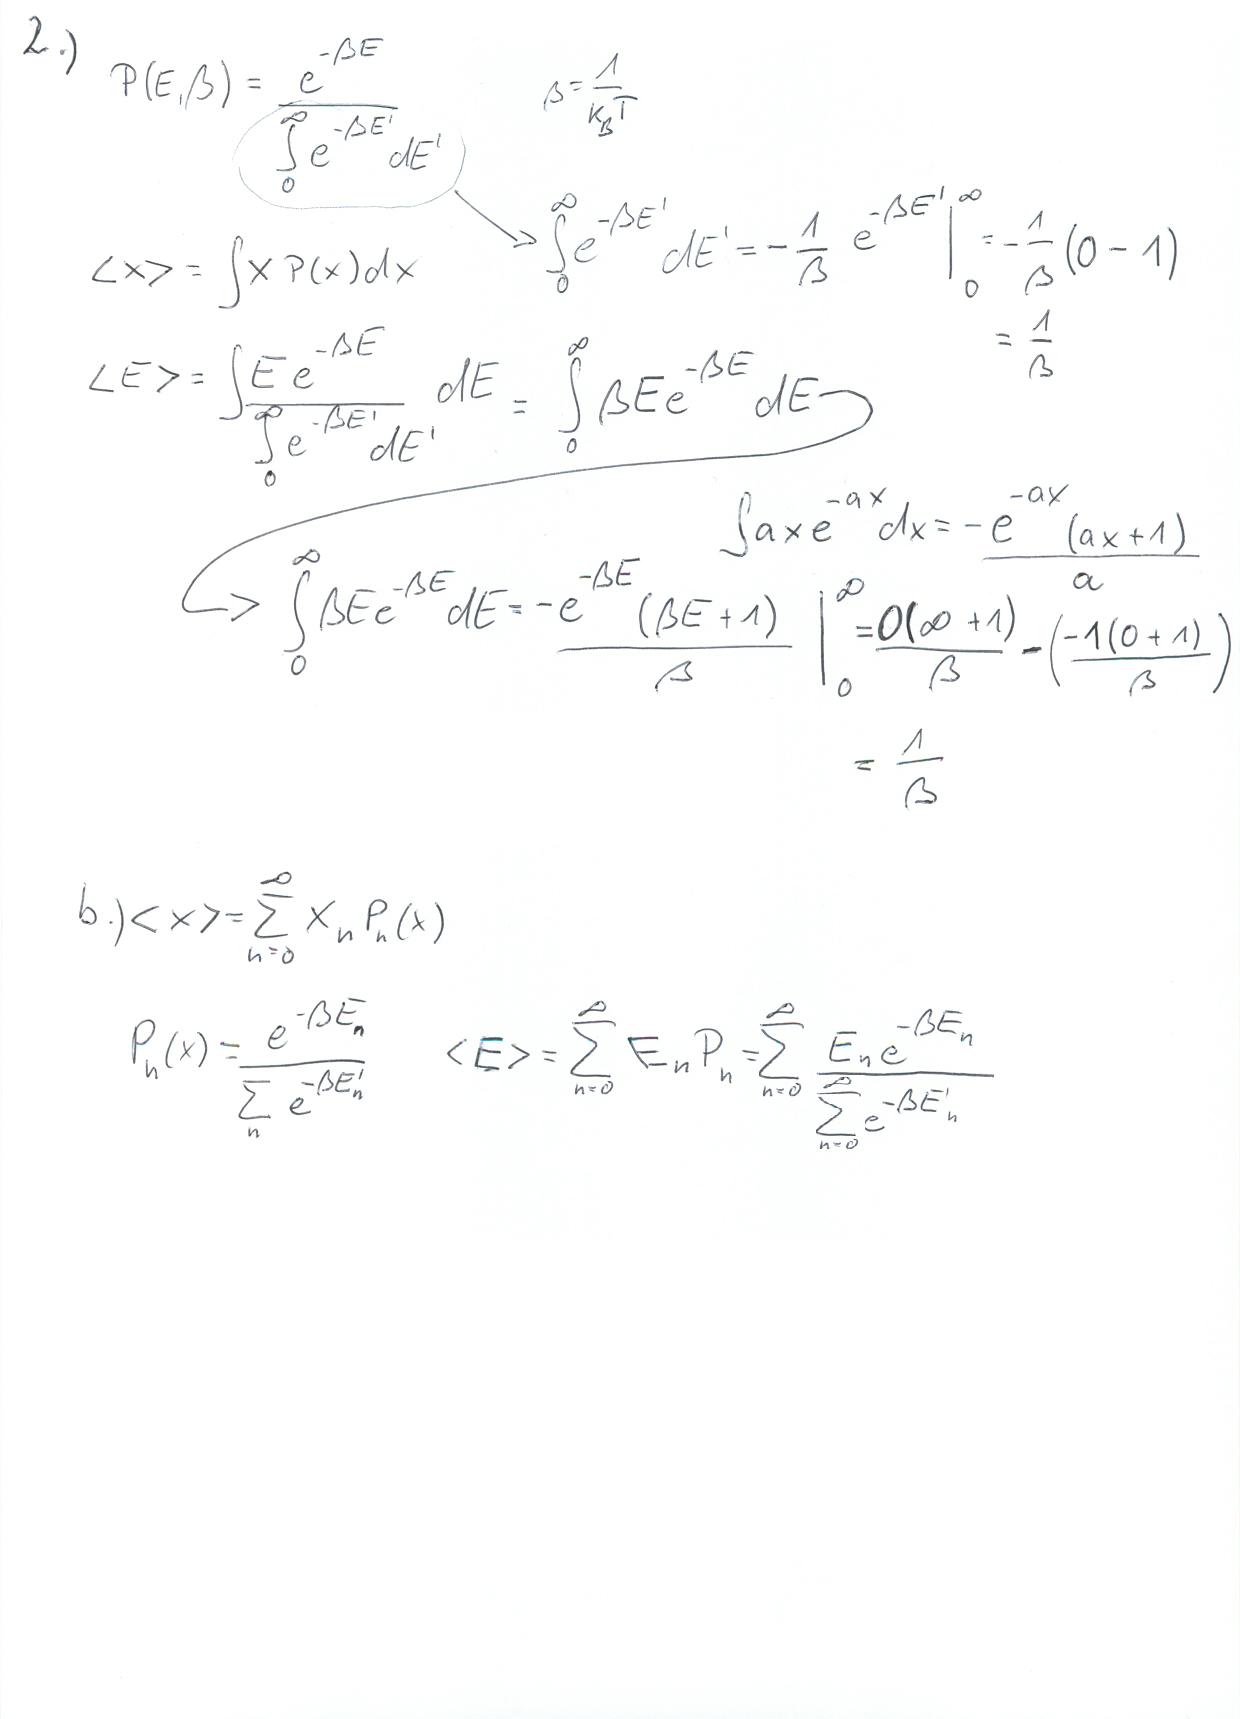 2.)
P(E,β) = e^{-βE} / ∫_0^∞ e^{-βE'} dE'    β = 1/(k_B T)
∫_0^∞ e^{-βE'} dE' = -1/β e^{-βE'} |_0^∞ = -1/β (0 - 1)
<x> = ∫ x P(x) dx
= 1/β
<E> = ∫ E e^{-βE} / ∫_0^∞ e^{-βE'} dE' dE = ∫_0^∞ βE e^{-βE} dE
∫ a x e^{-ax} dx = -e^{-ax} (ax+1) / a
∫_0^∞ βE e^{-βE} dE = -e^{-βE} (βE + 1) / β |_0^∞ = 0(∞ + 1) / β - (-1(0 + 1) / β)
= 1/β
b.) <x> = ∑_{n=0}^∞ x_n P_n(x)
P_n(x) = e^{-βE_n} / ∑_n e^{-βE'_n}    <E> = ∑_{n=0}^∞ E_n P_n = ∑_{n=0}^∞ E_n e^{-βE_n} / ∑_{n=0}^∞ e^{-βE'_n}